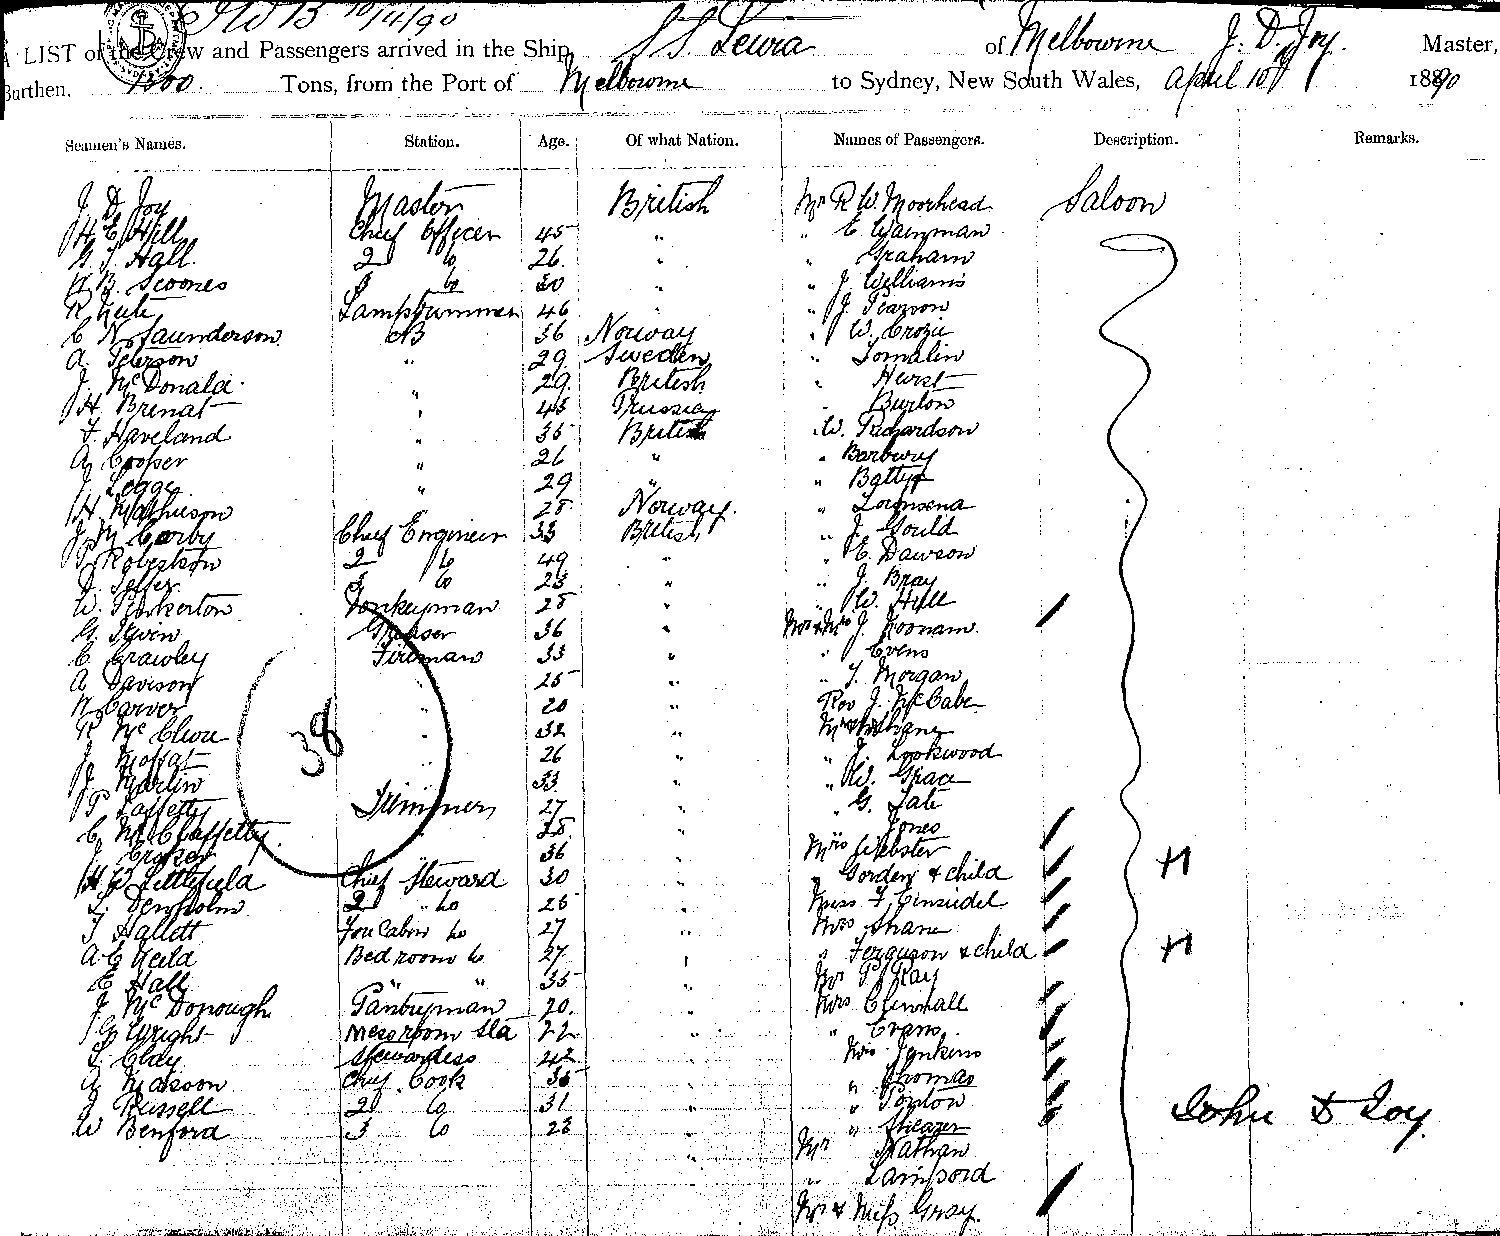 10/4/90
A LIST of the Crew and Passengers arrived in the Ship S.S. of Melbourne J. D. Joy. Master,
Burthen, Tons, from the Port of Melbourne to Sydney, New South Wales, April 10th 1890
Seamen's Names. Station. Age. Of what Nation. Names of Passengers. Description. Remarks.
J. D. Joy Master British Mr R W. Moorhead Saloon
H. E. Hill Chief Officer 45 " " E
G. T. Hall 2 Do 26 " " Graham
H. B. Scoones 3 Do 30 " " J. Williams
R Lamptrimmer 46 " " J. Pearson
C N. Saunderson AB 36 Norway " W. Crozie
A Peterson " 29 Sweden " Tomalin
J. McDonald " 29 British " Hurst
H. " 45 Prussia " Burton
F. Haveland " 35 British " W. Richardson
A Cooper " 26 " " Barbury
J. Legge " 29 " "
H. Mathieson 28 Norway "
J. M Corby Chief Engineer 33 British " J. Gould
P Robertson 2 Do 49 " " E. Dawson
3 Do " " J. Bray
W. Pinkerton Donkeyman 28 " " W. Hill
G. Greaser 36 " Mr & Mrs J. Noonan
C Crawley Fireman 33 " " Evens
A Davison " 25 " " T. Morgan
Carver " 20 " Rev J. McCabe
R McClure " 32 "
J. Moffat " 26 " " J. Lockwood
J. Martin 33 " " W. Grace
P Laffetty Trimmer 27 " " G. Tate
C. 28 " Jones
J 36 " Mrs Webster
H. B Littlefield Chief Steward 30 " " Gordon & child H
Denholm 2 " Do 25 " Miss F.
T Hallett Fore Cabin Do 27 " Mrs Shane
A E Neild Bedroom Do 27 " " Ferguson & child H
E Hall " " 35 " Mr P J Ray
J. McDonough Pantryman 20 " Mrs
G Wright messroom 22 " " Evans
Clay Stewardess 42 " Mrs Jenkins
A Masson Chief Cook 35 " " Thomas
J Russell 2 Do 31 " " Ponton
W Benford 3 Do 23 " " Shearer
" Mr Nathan
" Lampord
Mr & Miss Gray
38
John D Joy.